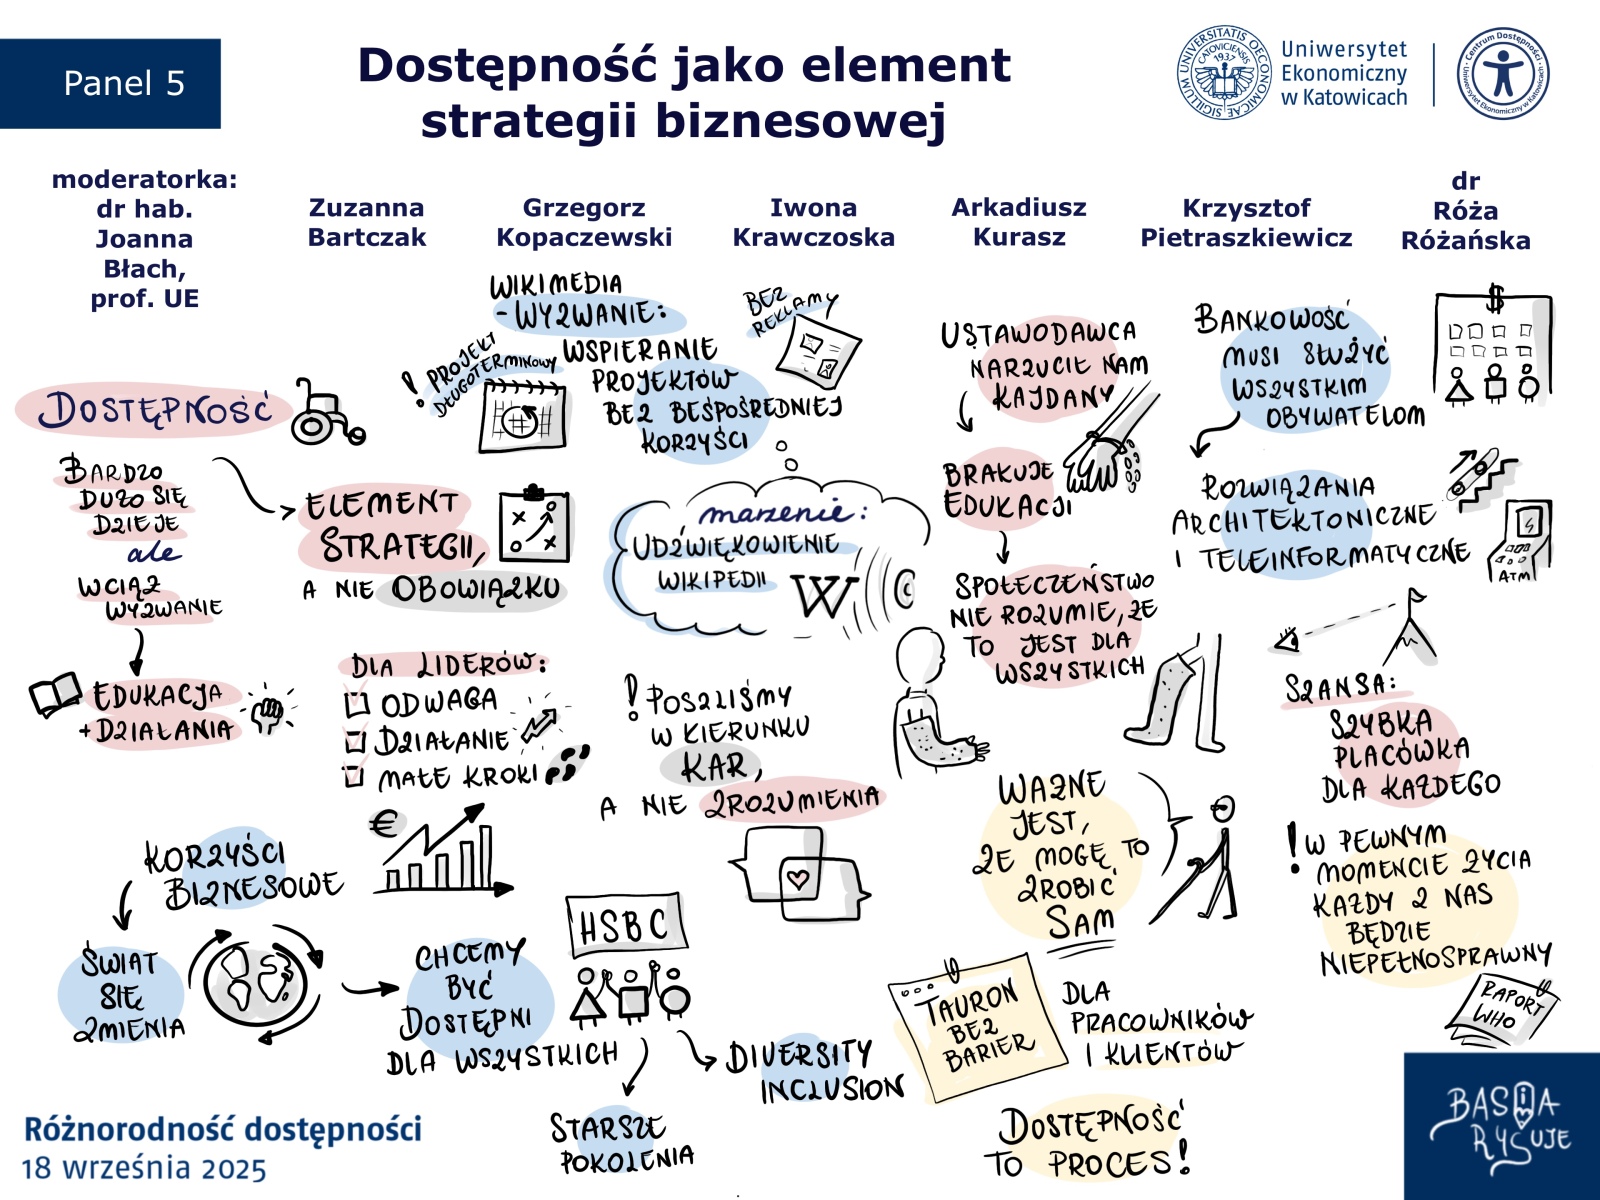 Panel 5
Dostępność jako element
strategii biznesowej
SIGILLUM UNIVERSITATIS OECONOMICAE CATOVICIENSIS
1937
Uniwersytet
Ekonomiczny
w Katowicach
Centrum Dostępności
Uniwersytet Ekonomiczny w Katowicach
moderatorka:
dr hab.
Joanna
Błach,
prof. UE
Zuzanna
Bartczak
Grzegorz
Kopaczewski
Iwona
Krawczoska
Arkadiusz
Kurasz
Krzysztof
Pietraszkiewicz
dr
Róża
Różańska
DOSTĘPNOŚĆ
BARDZO
DUŻO SIĘ
DZIEJE
ale
WCIĄŻ
WYZWANIE
EDUKACJA
+ DZIAŁANIA
ELEMENT
STRATEGII,
A NIE OBOWIĄZKU
DLA LIDERÓW:
ODWAGA
DZIAŁANIE
MAŁE KROKI
KORZYŚCI
BIZNESOWE
€
ŚWIAT
SIĘ
ZMIENIA
CHCEMY
BYĆ
DOSTĘPNI
DLA WSZYSTKICH
HSBC
STARSZE
POKOLENIA
DIVERSITY
INCLUSION
WIKIMEDIA
- WYZWANIE:
! PROJEKT
DŁUGOTERMINOWY
WSPIERANIE
PROJEKTÓW
BEZ BEŚPOŚREDNIEJ
KORZYŚCI
BEZ
REKLAMY
marzenie:
UDŹWIĘKOWIENIE
WIKIPEDII
W
! POSZLIŚMY
W KIERUNKU
KAR,
A NIE ZROZUMIENIA
USTAWODAWCA
NARZUCIŁ NAM
KAJDANY
BRAKUJE
EDUKACJI
SPOŁECZEŃSTWO
NIE ROZUMIE, ŻE
TO JEST DLA
WSZYSTKICH
WAŻNE
JEST,
ŻE MOGĘ TO
ZROBIĆ
SAM
TAURON
BEZ
BARIER
DLA
PRACOWNIKÓW
I KLIENTÓW
DOSTĘPNOŚĆ
TO PROCES!
BANKOWOŚĆ
MUSI SŁUŻYĆ
WSZYSTKIM
OBYWATELOM
$
ROZWIĄZANIA
ARCHITEKTONICZNE
I TELEINFORMATYCZNE
ATM
SZANSA:
SZYBKA
PLACÓWKA
DLA KAŻDEGO
! W PEWNYM
MOMENCIE ŻYCIA
KAŻDY Z NAS
BĘDZIE
NIEPEŁNOSPRAWNY
RAPORT
WHO
Różnorodność dostępności
18 września 2025
BASIA
RYSUJE